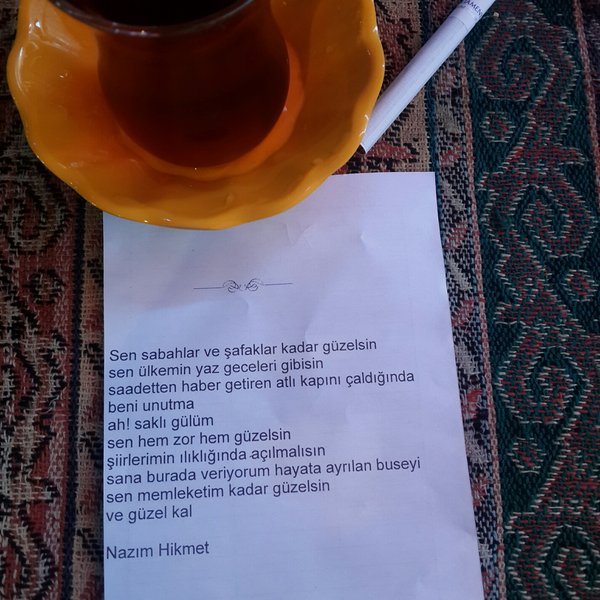 Sen sabahlar ve şafaklar kadar güzelsin
sen ülkemin yaz geceleri gibisin
saadetten haber getiren atlı kapını çaldığında
beni unutma
ah! saklı gülüm
sen hem zor hem güzelsin
şiirlerimin ılıklığında açılmalısın
sana burada veriyorum hayata ayrılan buseyi
sen memleketim kadar güzelsin
ve güzel kal
Nazım Hikmet